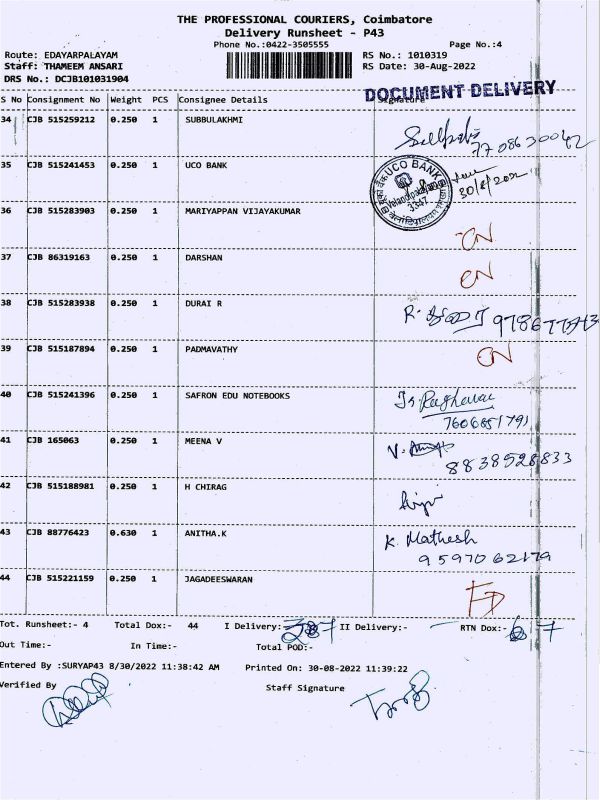 THE PROFESSIONAL COURIERS, Coimbatore
Delivery Runsheet - P43
Phone No.:0422-3505555
Page No.:4
Route: EDAYARPALAYAM
RS No.: 1010319
Staff: THAMEEM ANSARI
RS Date: 30-Aug-2022
DRS No.: DCJB101031904
DOCUMENT DELIVERY
S No Consignment No Weight PCS Consignee Details Signature
34 CJB 515259212 0.250 1 SUBBULAKHMI
7708630042
35 CJB 515241453 0.250 1 UCO BANK
UCO BANK
3347
36 CJB 515283903 0.250 1 MARIYAPPAN VIJAYAKUMAR
CN
37 CJB 86319163 0.250 1 DARSHAN
CN
38 CJB 515283938 0.250 1 DURAI R
R.
39 CJB 515187894 0.250 1 PADMAVATHY
CN
40 CJB 515241396 0.250 1 SAFRON EDU NOTEBOOKS
41 CJB 165063 0.250 1 MEENA V
V.
8838528833
42 CJB 515188981 0.250 1 H CHIRAG
43 CJB 88776423 0.630 1 ANITHA.K
K. Mathesh
9597062179
44 CJB 515221159 0.250 1 JAGADEESWARAN
Tot. Runsheet:- 4 Total Dox:- 44 I Delivery:- II Delivery:- RTN Dox:- 7
Out Time:- In Time:- Total POD:-
Entered By :SURYAP43 8/30/2022 11:38:42 AM Printed On: 30-08-2022 11:39:22
Verified By Staff Signature